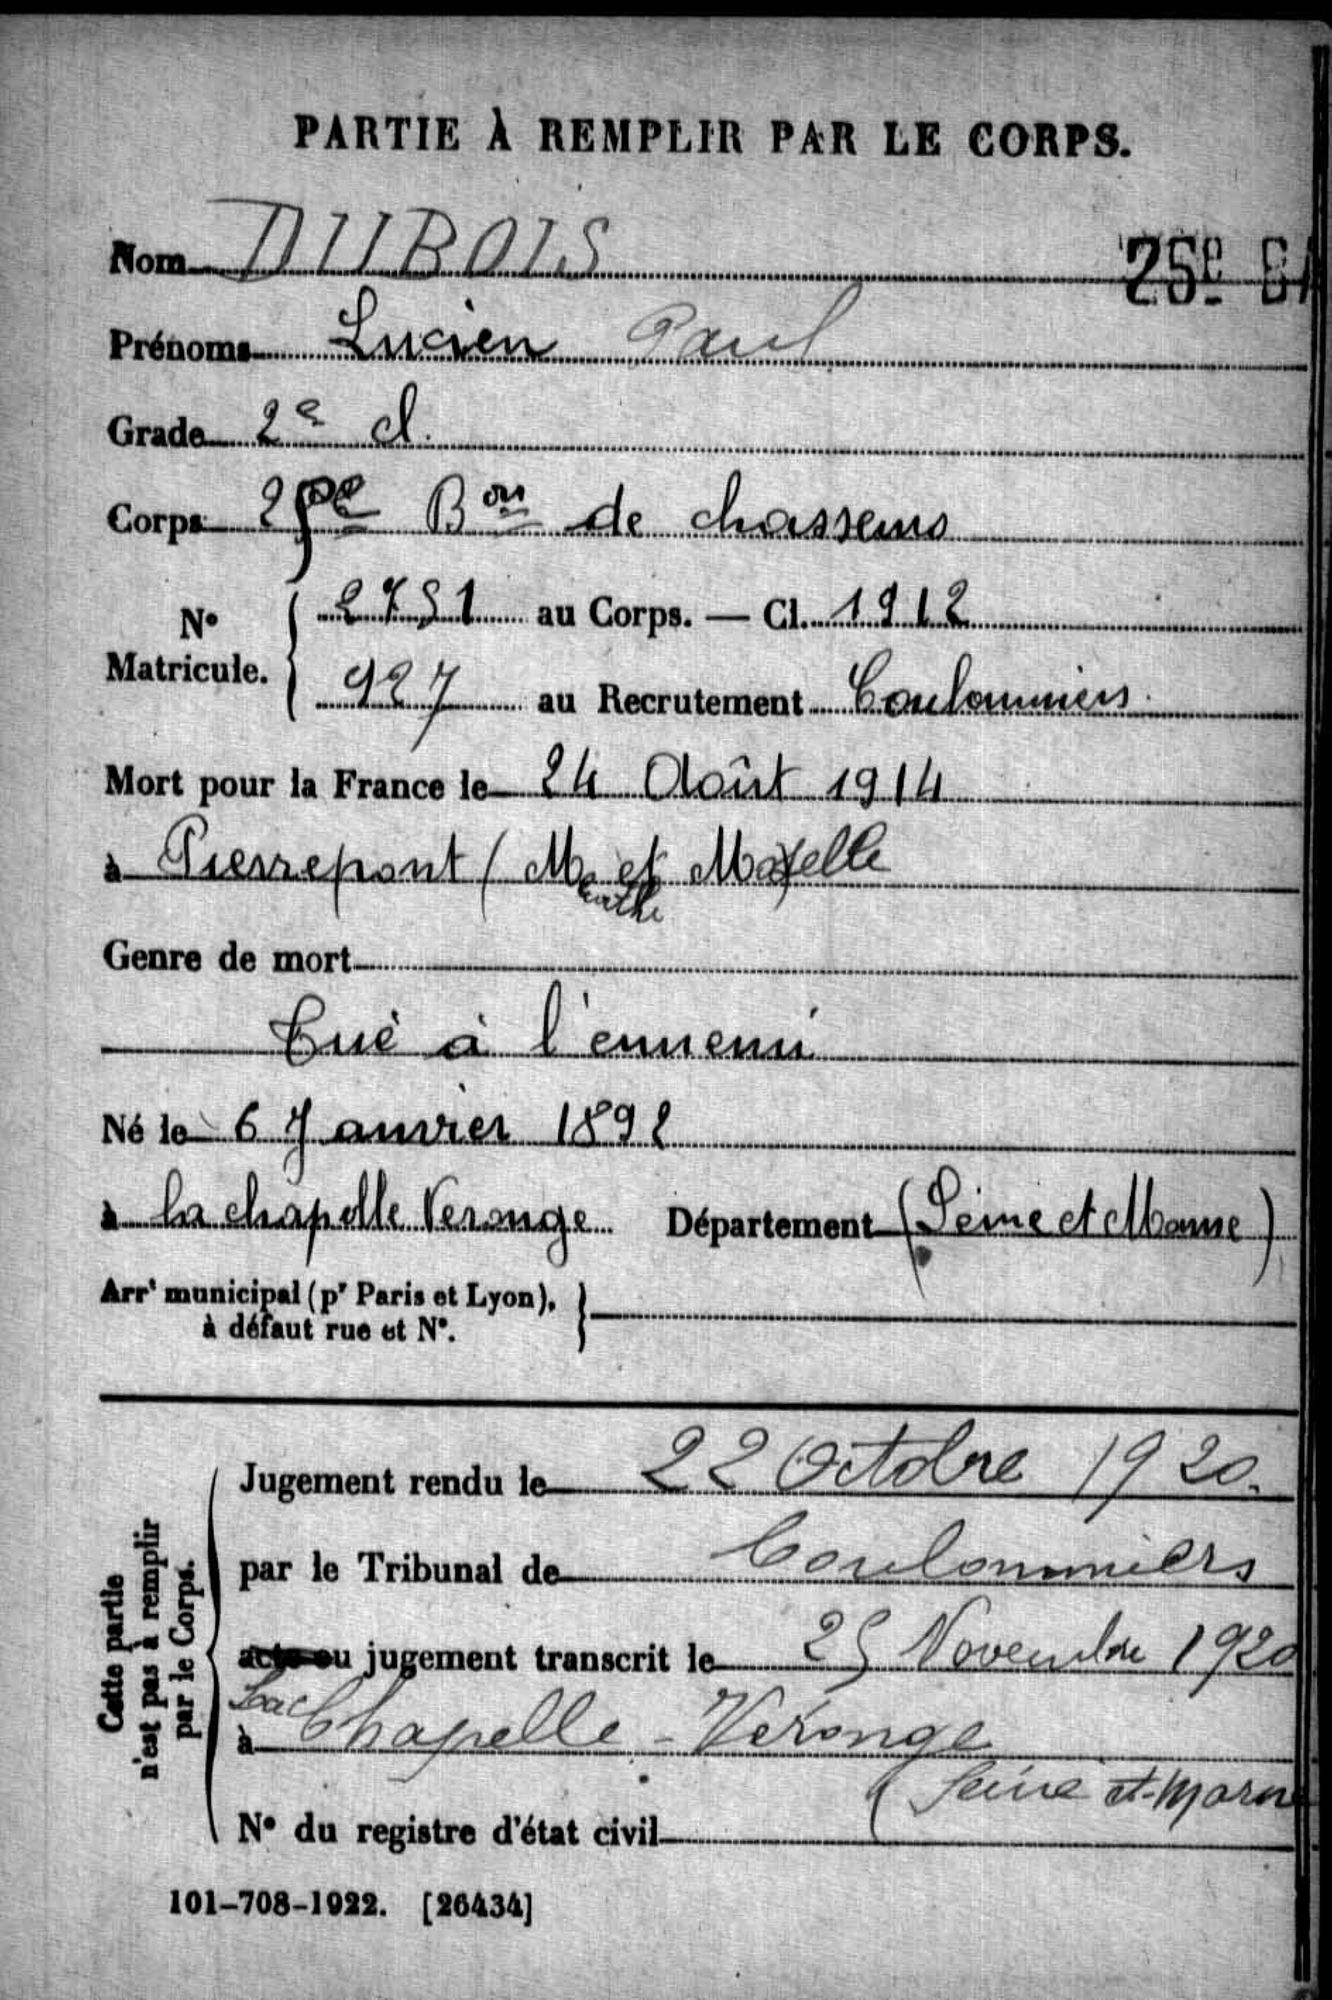 PARTIE À REMPLIR PAR LE CORPS.
Nom DUBOIS
25e B
Prénoms Lucien Paul
Grade 2e cl.
Corps 25e Bon de chasseurs
No Matricule. { 2751 au Corps. — Cl. 1912
927 au Recrutement Coulommiers
Mort pour la France le 24 Août 1914
à Pierrepont (Meurthe et Moselle
Genre de mort
Tué à l'ennemi
Né le 6 Janvier 1892
à La chapelle Veronge Département (Seine et Marne)
Arrt municipal (pr Paris et Lyon), }
à défaut rue et No.
Cette partie
n'est pas à remplir
par le Corps.
Jugement rendu le 22 Octobre 1920.
par le Tribunal de Coulommiers
acte ou jugement transcrit le 25 Novembre 1920
à La Chapelle-Véronge
(Seine et-Marne
No du registre d'état civil
101-708-1922. [26434]